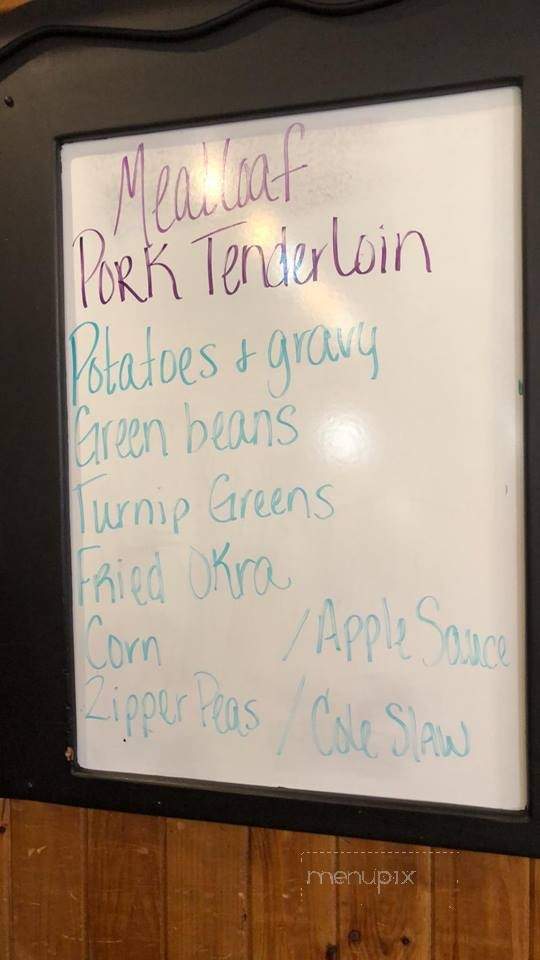 Meatloaf
PORK Tenderloin
Potatoes & gravy
Green beans
Turnip Greens
FRied OKra
Corn / Apple Sauce
Zipper Peas / Cole SLAW
menupix